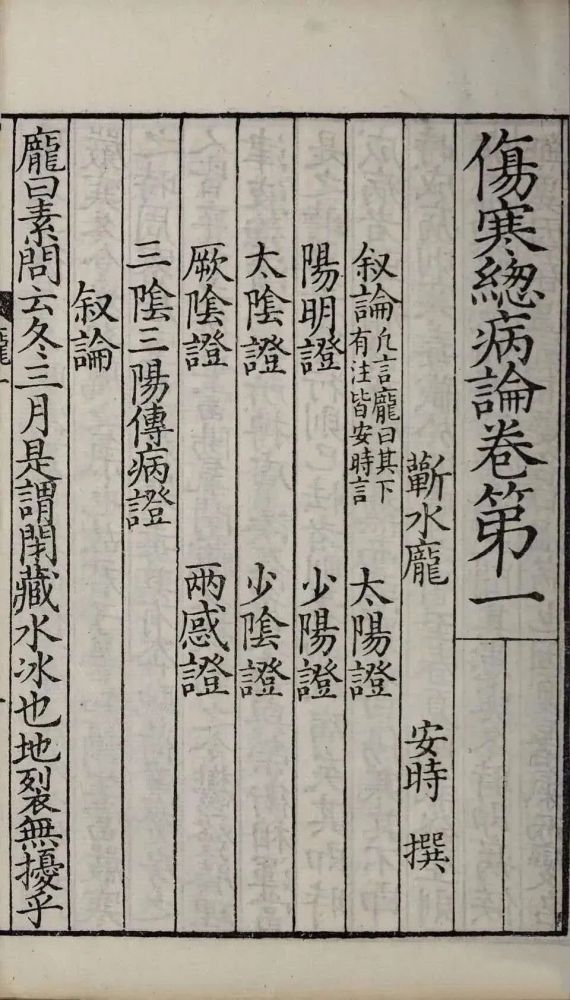 傷寒緫病論卷第一
蘄水龐 安時 撰
叙論凢言龐曰其下有注皆安時言 太陽證
陽明證 少陽證
太陰證 少陰證
厥陰證 兩感證
三陰三陽傳病證
叙論
龐曰素問云冬三月是謂閉藏水冰也地裂無擾乎